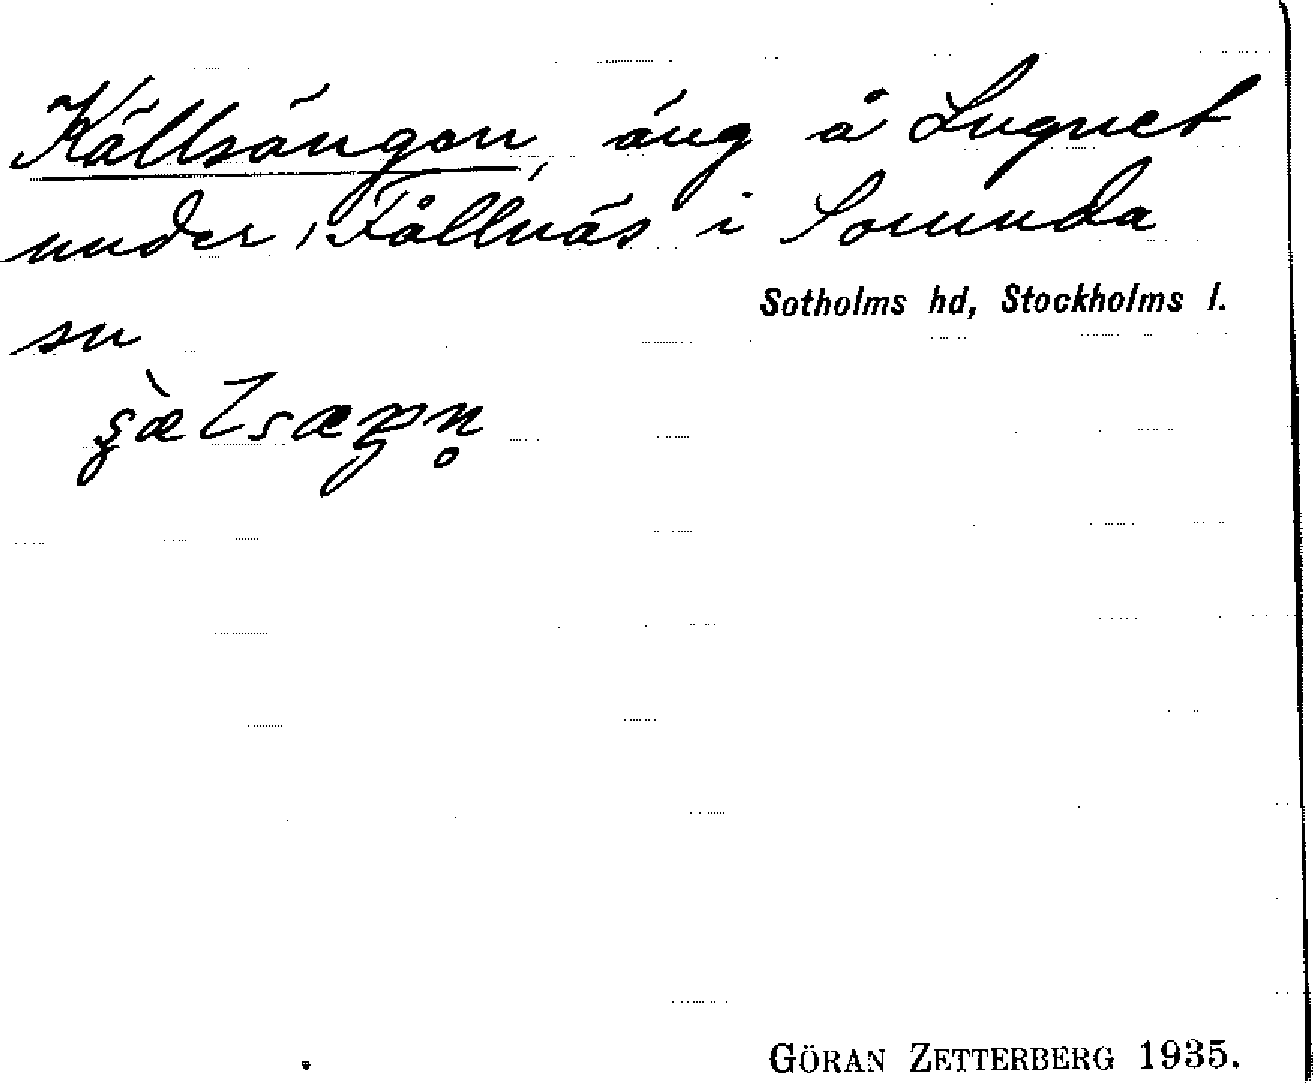 Källsängen, äng å Lugnet
under Fållnäs i Sorunda
Sotholms hd, Stockholms l.
sn
GÖRAN ZETTERBERG 1935.